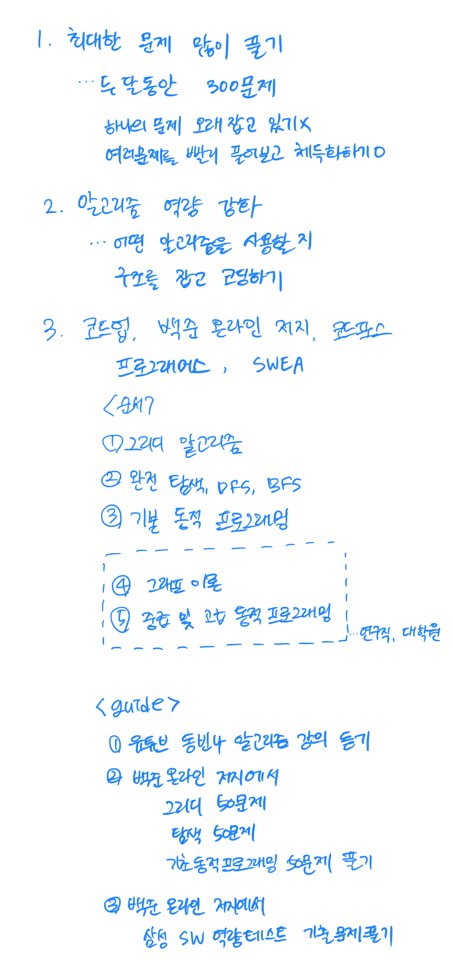 1. 최대한 문제 많이 풀기
… 두 달동안 300문제
하나의 문제 오래 잡고 있기 X
여러문제를 빨리 풀어보고 체득화하기 O
2. 알고리즘 역량 강화
… 어떤 알고리즘을 사용할지
구조를 잡고 코딩하기
3. 코드업, 백준 온라인 저지, 코드포스
프로그래머스, SWEA
<순서>
① 그리디 알고리즘
② 완전 탐색, DFS, BFS
③ 기본 동적 프로그래밍
④ 그래프 이론
⑤ 중급 및 고급 동적 프로그래밍
… 연구직, 대학원
<guide>
① 유튜브 동빈나 알고리즘 강의 듣기
② 백준 온라인 저지에서
그리디 50문제
탐색 50문제
기초 동적 프로그래밍 50문제 풀기
③ 백준 온라인 저지에서
삼성 SW 역량테스트 기출문제풀기